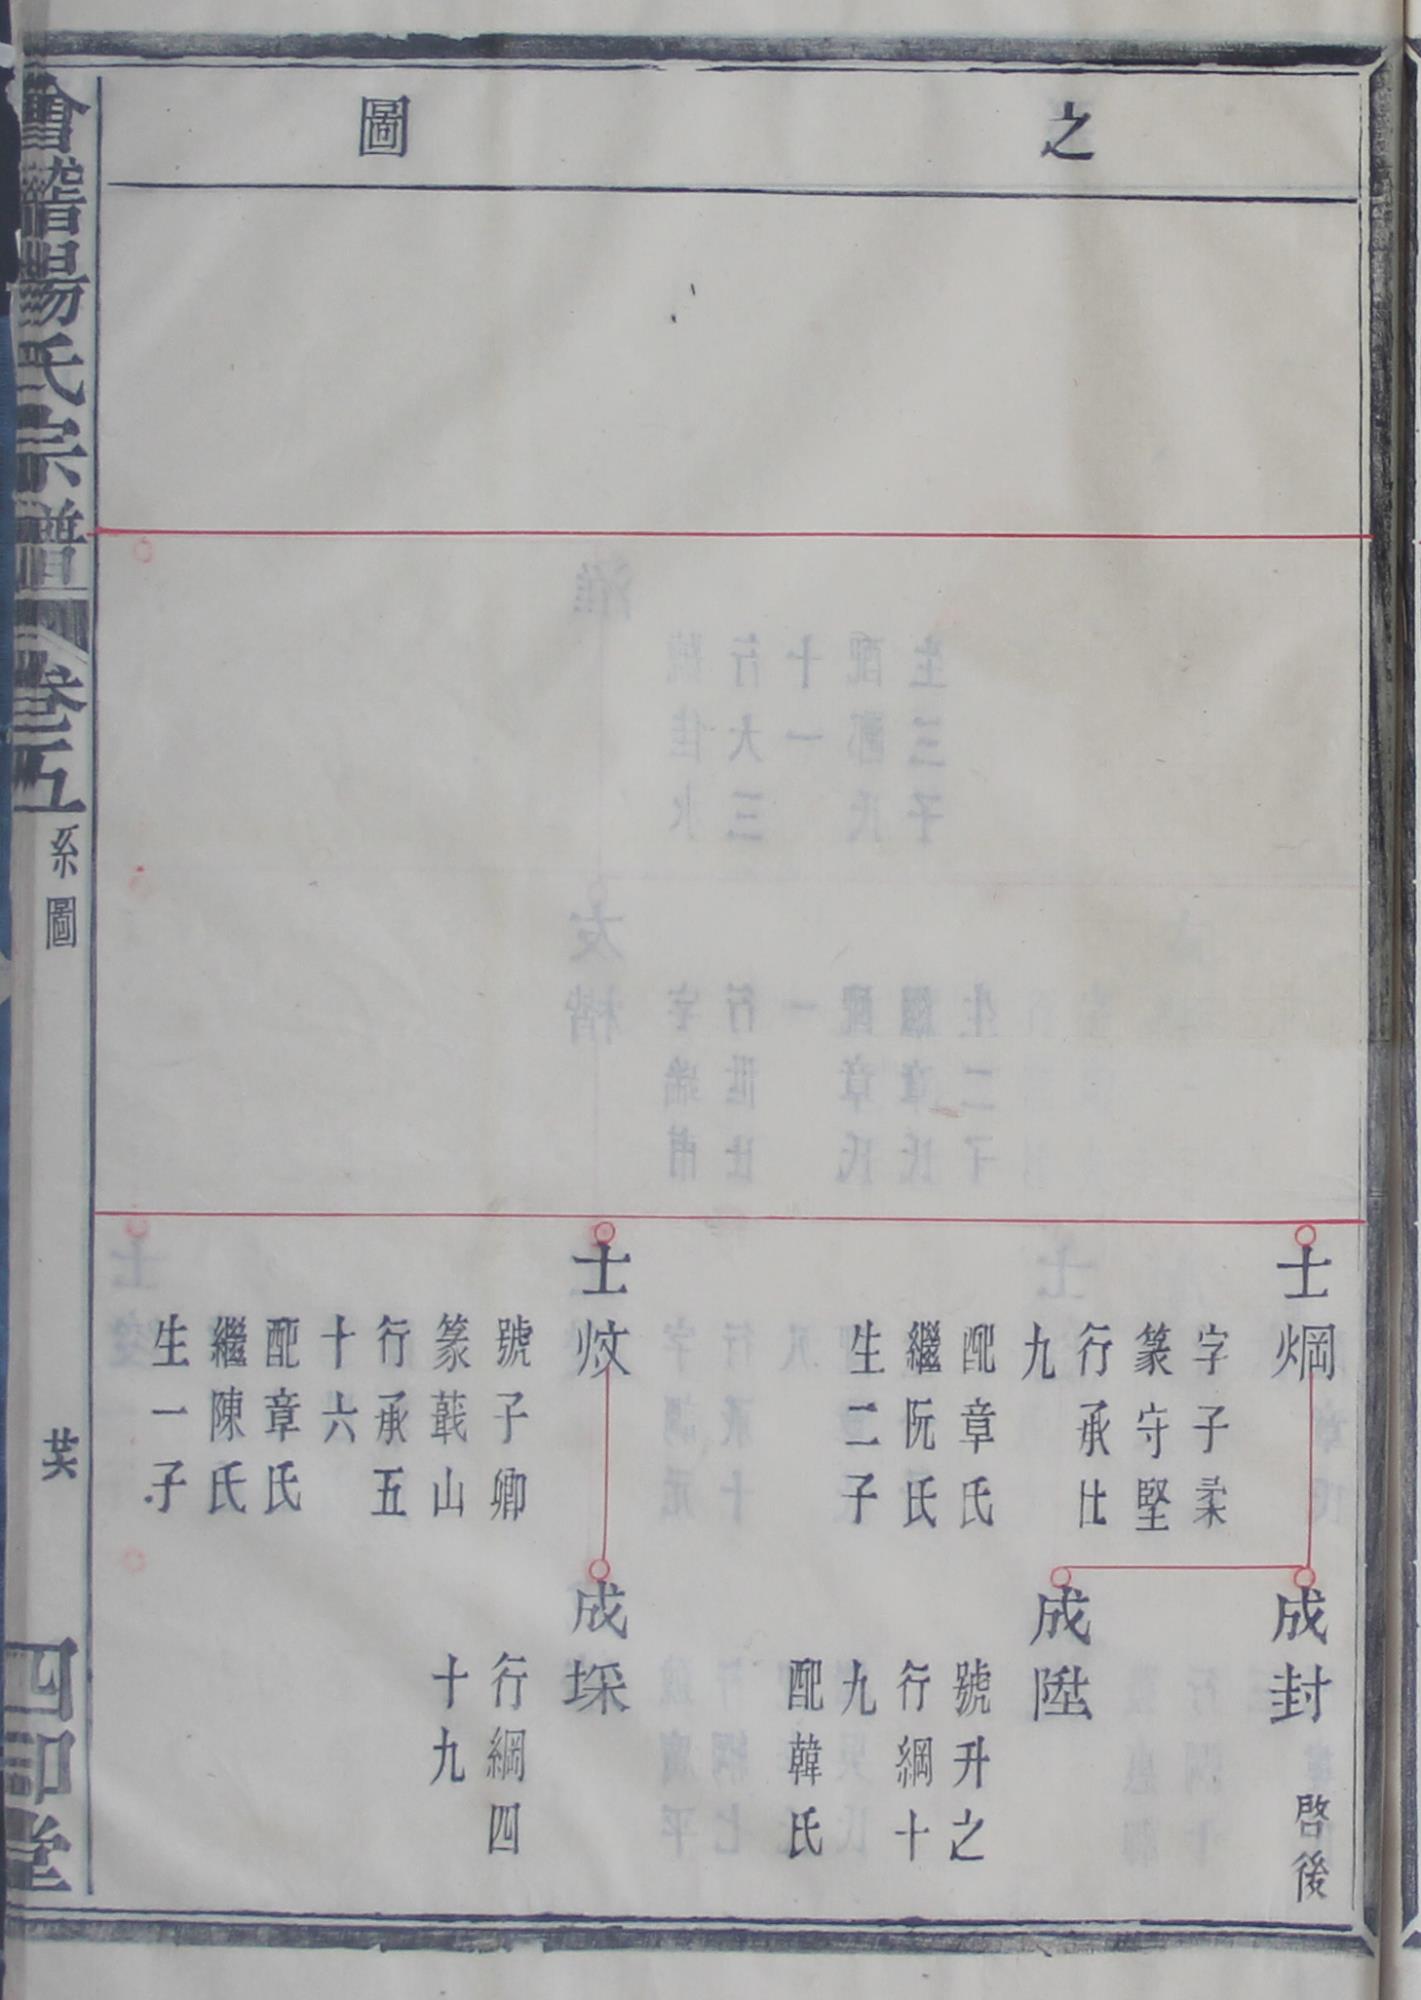 之圖
士焵
字子柔
篆守堅
行承仕
九
配章氏
繼阮氏
生二子
成封
啓後
成陞
號升之
行綱十
九
配韓氏
士炆
號子卿
篆蕺山
行承五
十六
配章氏
繼陳氏
生一子
成埰
行綱四
十九
會稽暘氏宗譜
卷五
系圖
四印堂